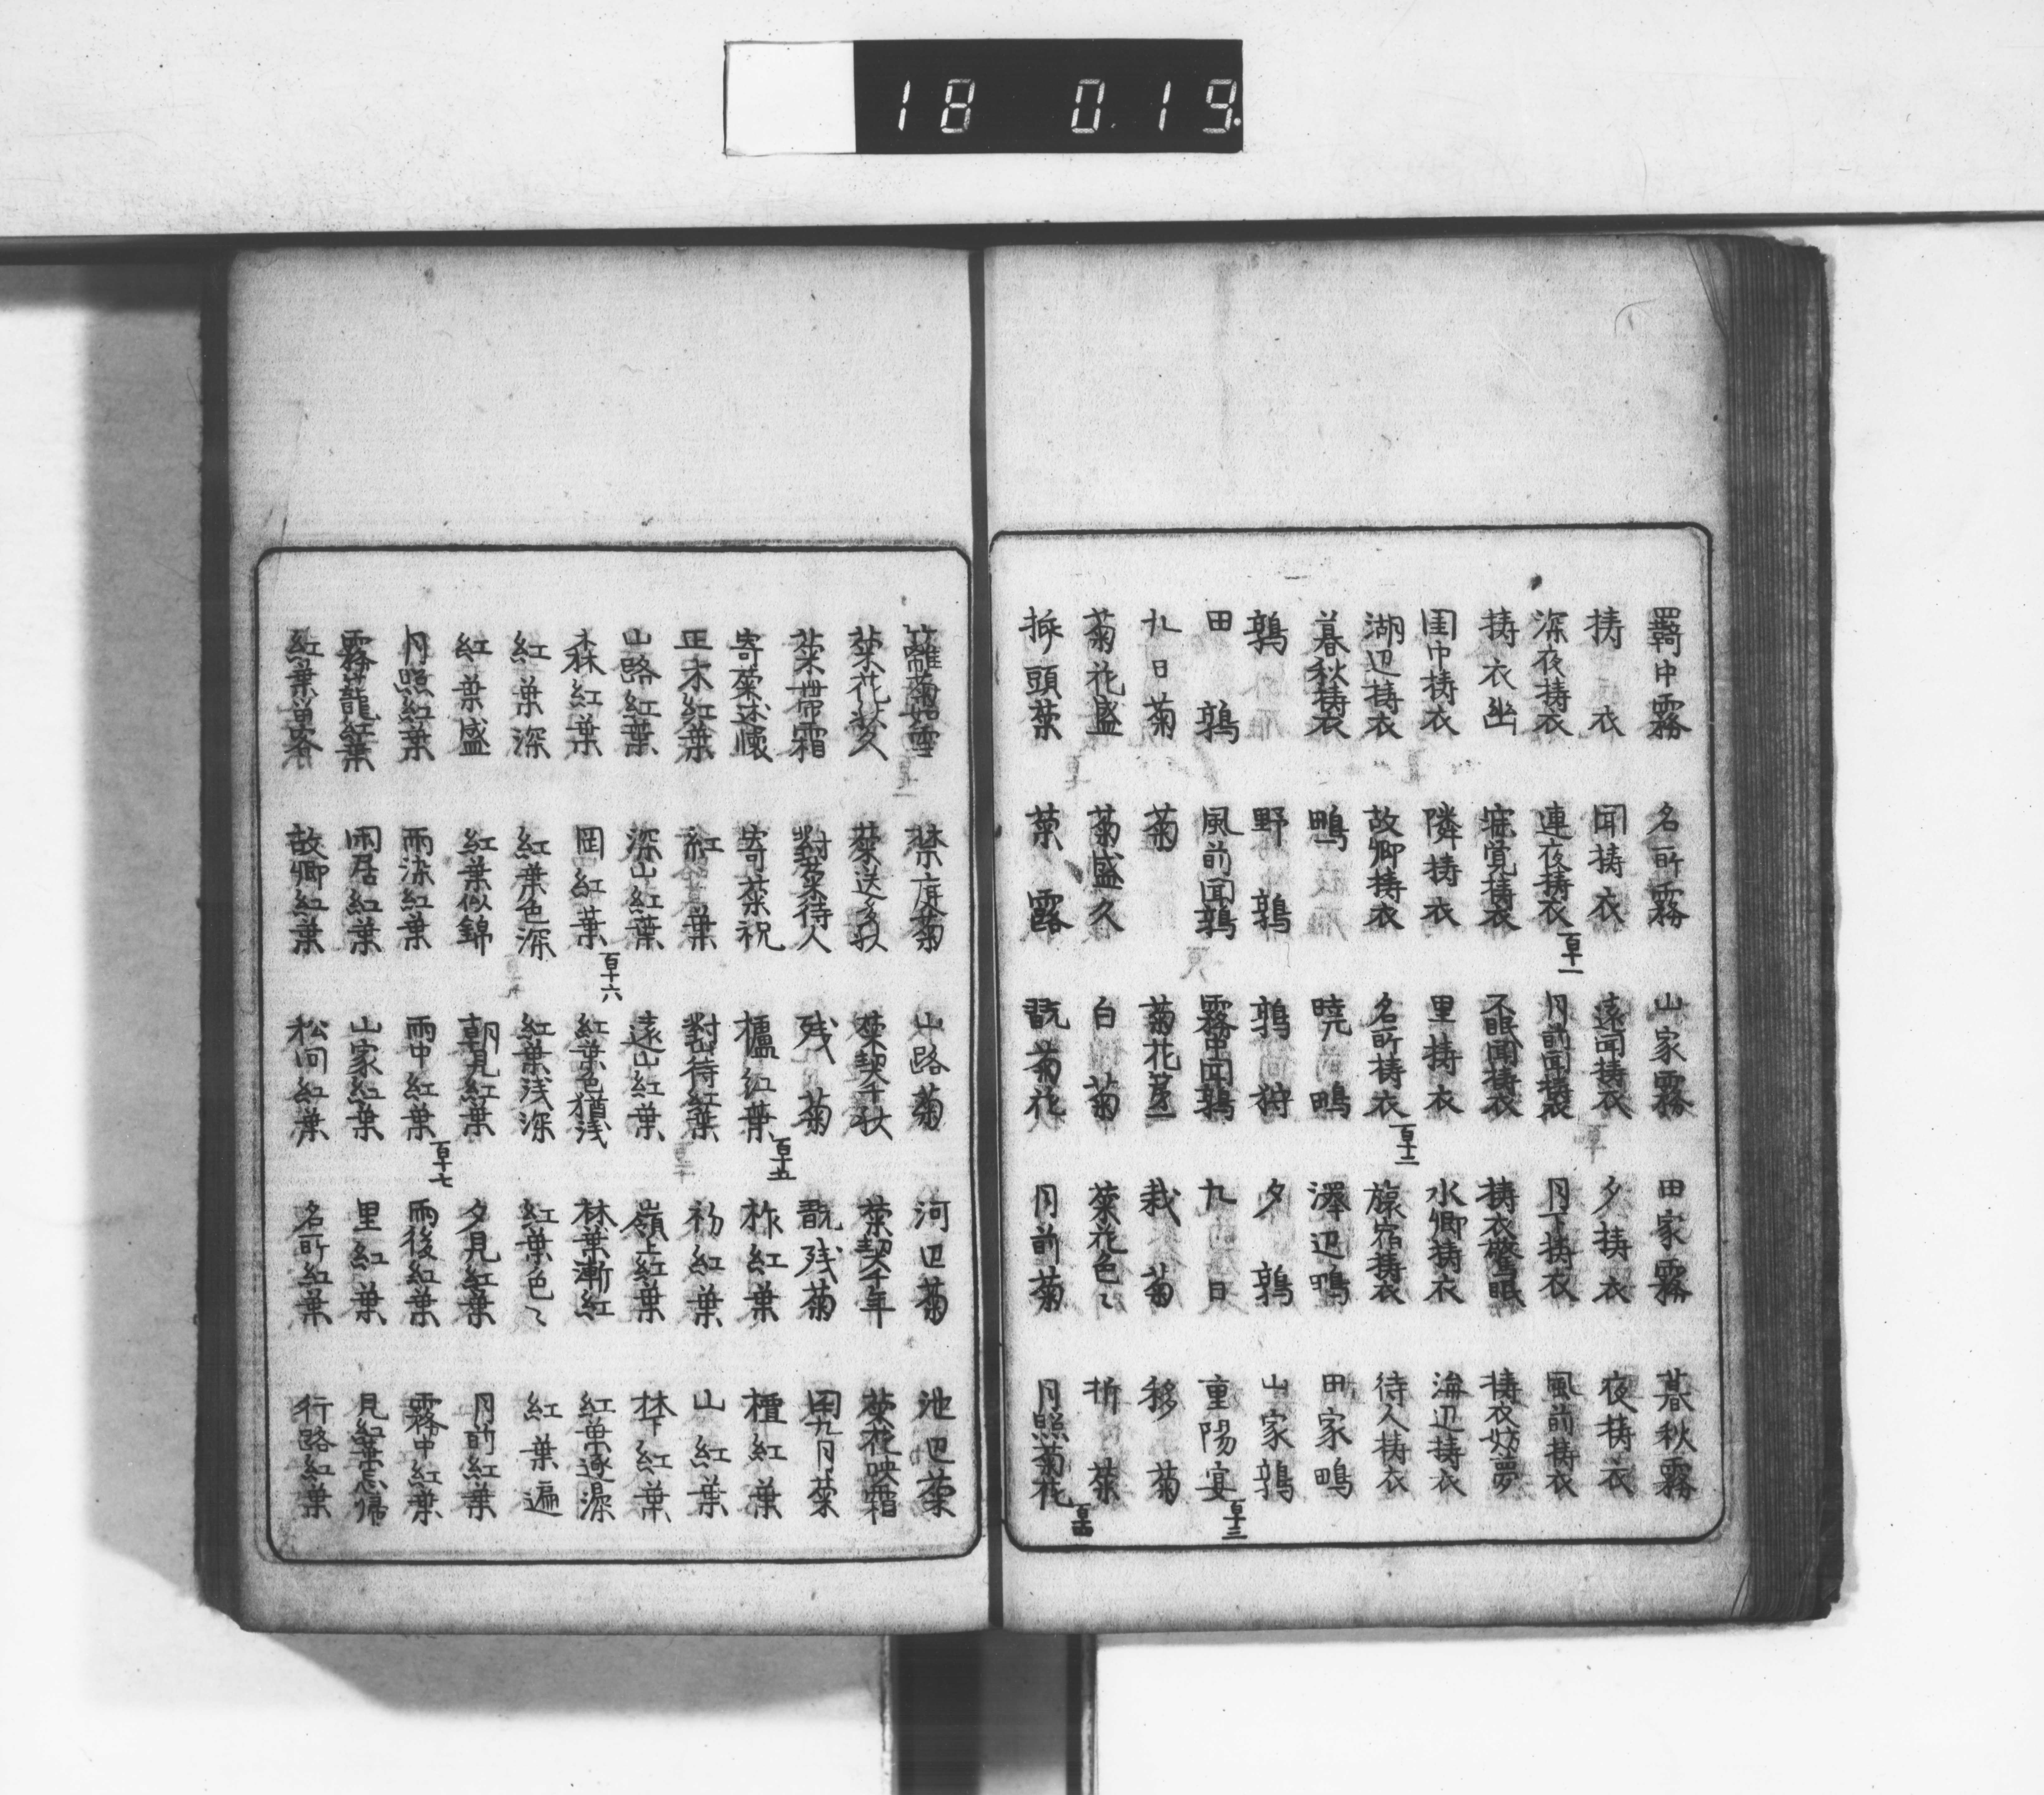 羇中霧 名所霧 山家霧 田家霧 暮秋霧
擣衣 聞擣衣 遠聞擣衣 夕擣衣 夜擣衣
深夜擣衣 連夜擣衣 百十一 月前聞擣衣 月下擣衣 風前擣衣
擣衣幽 寤覚擣衣 不眠聞擣衣 擣衣驚眠 擣衣妨夢
閨中擣衣 隣擣衣 里擣衣 水郷擣衣 海辺擣衣
湖辺擣衣 故郷擣衣 名所擣衣 百十二 旅宿擣衣 待人擣衣
暮秋擣衣 鴫 暁鴫 澤辺鴫 田家鴫
鶉 野鶉 鶉狩 夕鶉 山家鶉
田鶉 風前聞鶉 霧中聞鶉 九日 重陽宴 百十三
九日菊 菊 菊花第一 栽菊 移菊
菊花盛 菊盛久 白菊 菊花色〻 折菊
挿頭菊 菊露 翫菊花 月前菊 月照菊花 百十四
籬菊如雪 禁庭菊 山路菊 河辺菊 池辺菊
菊花久 菊送多秋 菊契千秋 菊契千年 菊花映霜
菊帯霜 對菊待人 残菊 翫残菊 閏九月菊
寄菊述懐 寄菊祝 櫨紅葉 百十五 柞紅葉 檀紅葉
正木紅葉 紅葉 對山待紅葉 初紅葉 山紅葉
山路紅葉 深山紅葉 遠山紅葉 嶺上紅葉 林下紅葉
森紅葉 岡紅葉 百十六 紅葉色猶浅 林葉漸紅 紅葉逐湿
紅葉深 紅葉色深 紅葉浅深 紅葉色〻 紅葉遍
紅葉盛 紅葉似錦 朝見紅葉 夕見紅葉 月前紅葉
月照紅葉 雨染紅葉 雨中紅葉 百十七 雨後紅葉 霧中紅葉
霧籠紅葉 閑居紅葉 山家紅葉 里紅葉 見紅葉忘帰
紅葉留客 故郷紅葉 松間紅葉 名所紅葉 行路紅葉
18 019